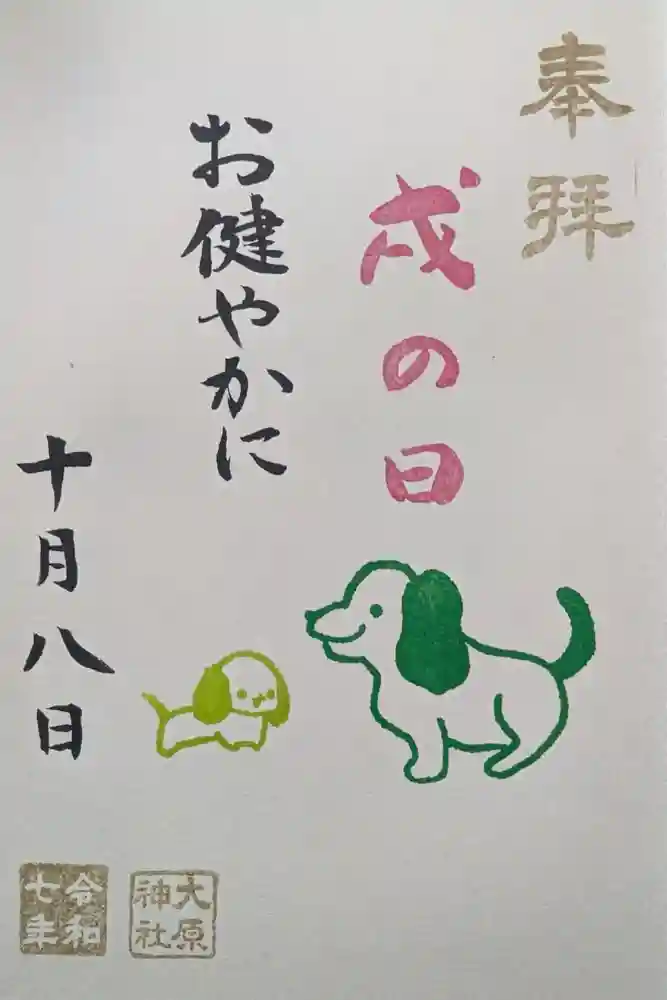 奉拝
戌の日
お健やかに
十月八日
大原神社
令和七年